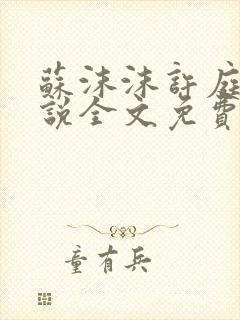 蘇沫沫許庭
說全文免費
童有兵